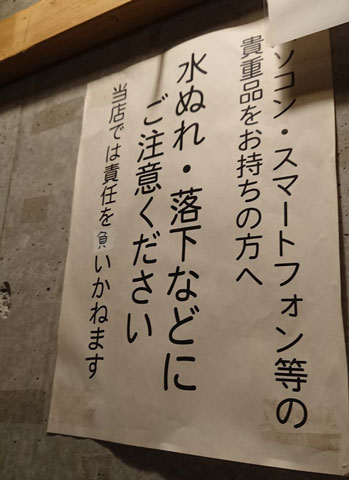 ソコン・スマートフォン等の
貴重品をお持ちの方へ
水ぬれ・落下などに
ご注意ください
当店では責任を負いかねます